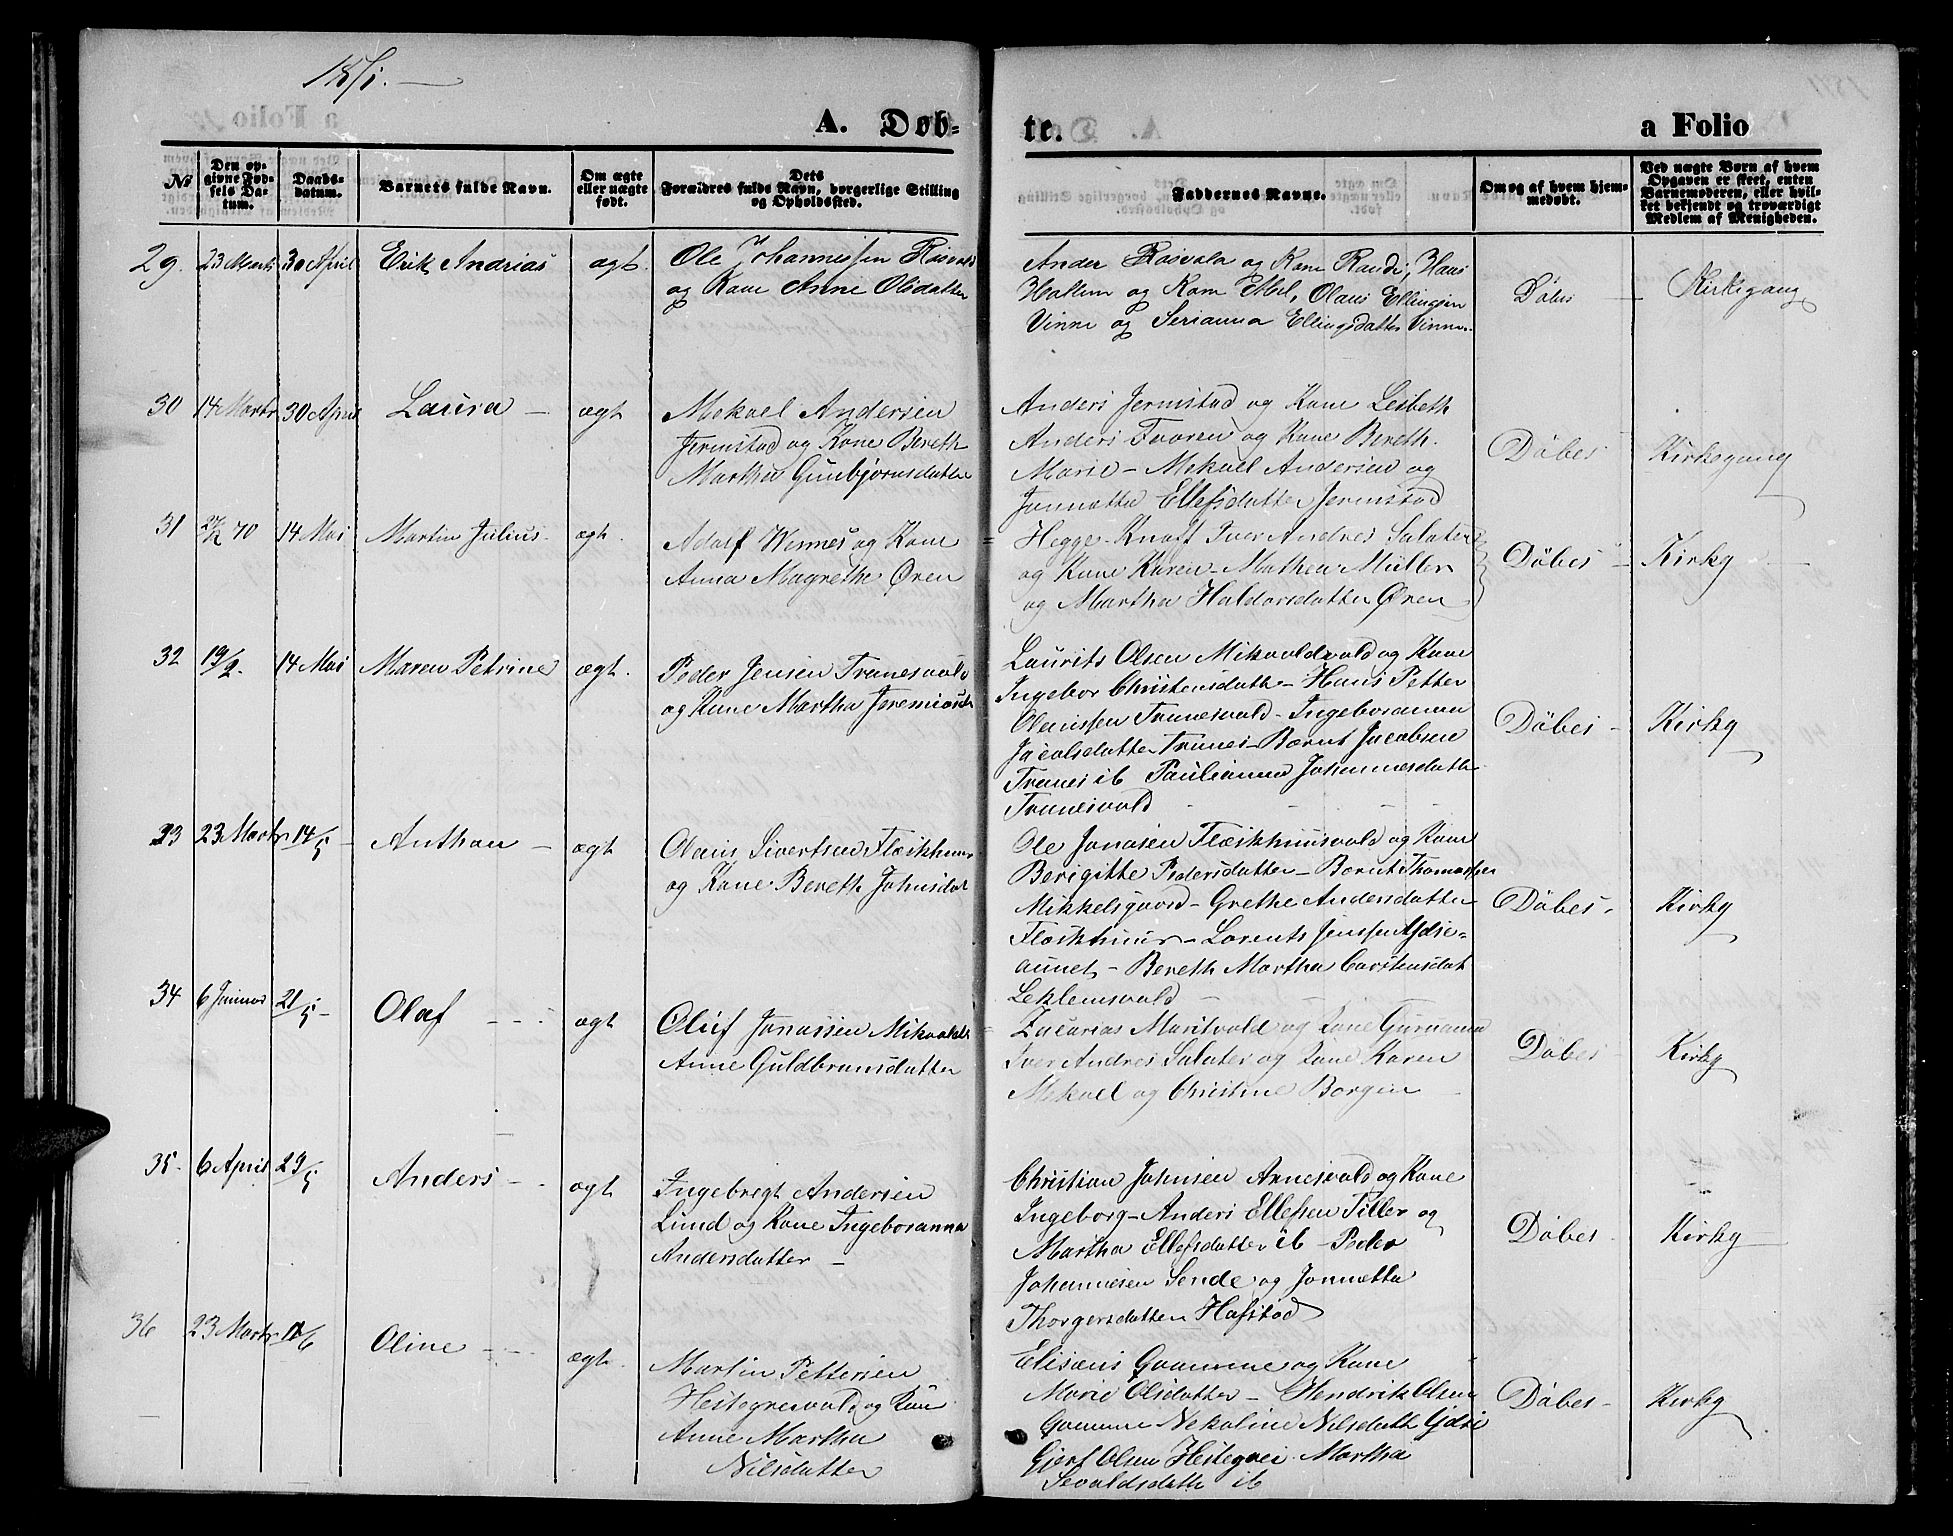 1871. —
A. Døb=
te.
a Folio
No
Den op=
givne Fød=
sels Da=
tum.
Daabs=
datum.
Barnets fulde Navn.
Om ægte
eller uægte
født.
Dets
Forældres fulde Navn, borgerlige Stilling
og Opholdssted.
Faddernes Navne.
Om og af hvem hjem=
medøbt.
Ved uægte Børn af hvem
Opgaven er skeet, enten
Barnemoderen, eller hvil=
ket bekjendt og troværdigt
Medlem af Menigheden.
29. 23 Marts 30 April Erik Andrias ægt.
Ole Johannissen
og Kone Anne Olsdatter
Ander Rosvola og Kone Randi, Hans
Hallem og Kone Mel, Olaus Ellingsen
Vinne og Serianna Ellingsdatter Vinne.
Døbes — Kirkegang
30 14 Marts 30 April Laura — ægt
Mekael Andersen
Jermstad og Kone Bereth
Martha Gunbjørnsdatter
Anders Jermstad og Kone Lesbeth
Anders Faaren og Kone Bereth
Marie — Mekael Andersen og
Jonnetta Ellefsdatter Jermstad
Døbes Kirkegang
31 27/12 70 14 Mai Martin Julius. ægt.
Adolf Winnes og Kone
Anna Magrethe Øren
Hegge — Knoff Iver Andres Salater
og Kone Karen — Mathea Müller
og Martha Haldorsdatter Øren
Døbes — Kirkg —
32 19/2. 14 Mai Maren Petrine ægt.
Peder Jensen Tranesvald
og Kone Martha
Laurits Olsen Mikvoldvald og Kone
Ingebor Christensdatt — Hans Petter
Olaussen Tranesvald — Ingeboranna
Jacobsdatter Tranes — Bernt Jacobsen
Tranes ib Paulianna Johannesdatt
Tranesvald
Døbes — Kirkg
33 23 Marts 14/5 — Anthon — ægt
Olaus Sivertsen
og Kone Bereth Johnsdat
Ole Jonasen Fleskhuusvald og Kone
Berigitte Pedersdatter — Bernt Thomassen
Mikkelsgaard — Grethe Andersdatter
Fleskhuus — Lorents Jenssen
aunet — Bereth Martha Carstensdat
Leklemsvald —
Døbes. Kirkg
34 6 Januar 21/5 — Olaf — ægt
Oluf Jonassen
Anne Guldbransdatter
Zacarias Maritvold og Kone Guruanna
Iver Andres Salater og Kone Karen
Mekael og Christine Borgen
Døbes Kirkg
35. 6 April 29/5 Anders — ægt
Ingebregt Andersen
Lund og Kone Ingeboranna
Andersdatter —
Christian Johnsen Arnesvald og Kone
Ingeborg — Anders Ellefsen Tiller og
Martha Ellefsdatter ib — Peder
Johannesen Sende og Jonnetta
Thorgersdatter Hafstad
Døbes. Kirkg —
36 23 Marts Oline — ægt.
Martin Pettersen
Hestegreivald og Kone
Anne Martha
Nilsdatter
Elisæus Gramme og Kone
Marie Olsdatter — Hendrik Olsen
Nekoline Nilsdatt
Olsen Hestegrei Martha
Sevaldsdatt ib
Døbes — Kirkg